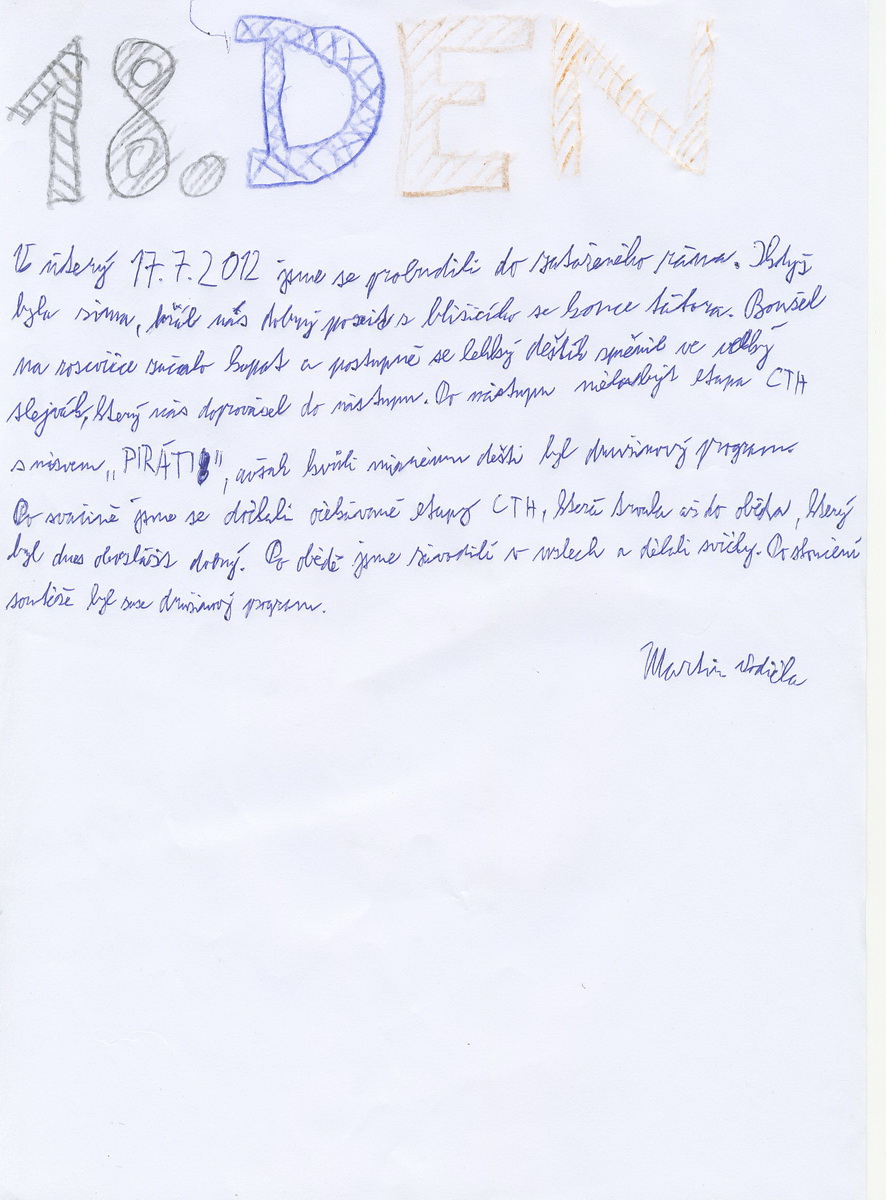 18. DEN
V úterý 17.7.2012 jsme se probudili do zataženého rána. I když
byla zima, hřál nás dobrý pocit z blížícího se konce tábora. Bouřel
na rozcvičce začalo kapat a postupně se lehký deštík změnil ve velký
slejvák, který nás doprovázel do nástupu. Po nástupu měla být etapa CTH
s názvem „PIRÁTI", avšak kvůli mírnému dešti byl družinový program.
Po svačině jsme se dočkali očekávané etapy CTH, která trvala až do oběda, který
byl dnes obzvlášť dobrý. Po obědě jsme závodili v uzlech a dělali svíčky. Po skončení
soutěže byl zase družinový program.
Martin Vodička